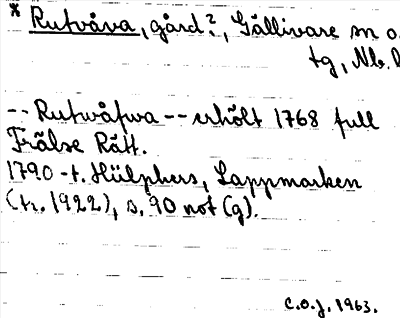 * Rutvåva, gård?, Gällivare sn o.
tg, Nb. l
-- Rutwåfwa -- erhölt 1768 full
Frälse Rätt.
1790 -t. Hülphers, Lappmarken
(tr. 1922), s. 90 not (g).
C.O.J. 1963.